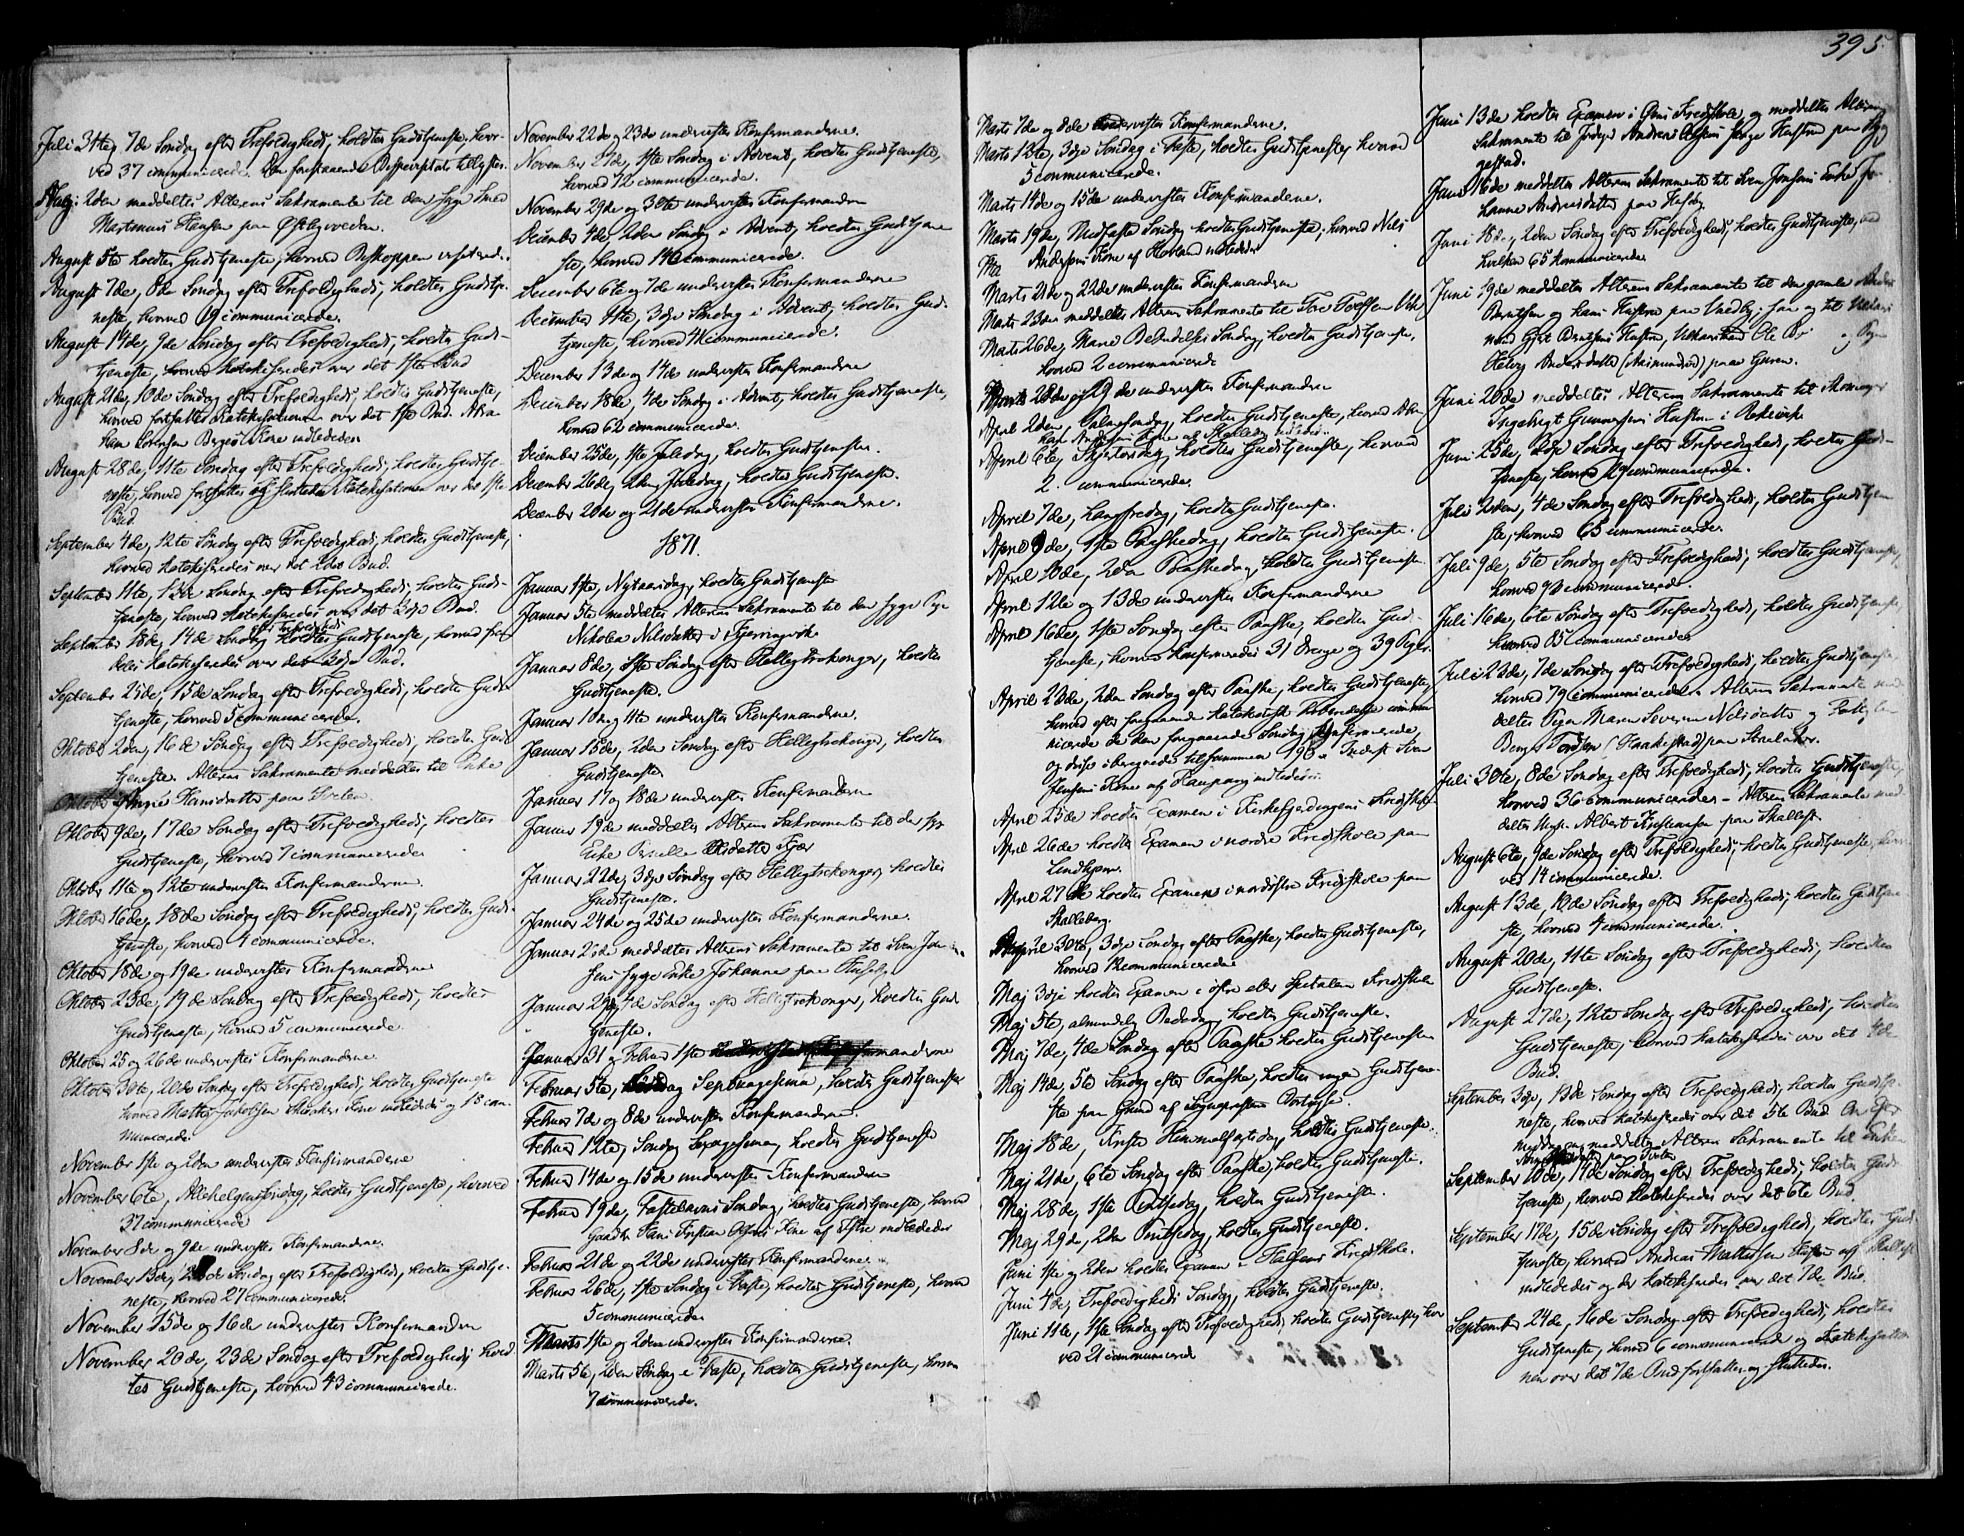 395.
Juli 31te, 7de Søndag efter Trefoldighed, holdtes Gudstjeneste, hvor-
ved 37 communicerede.
2den meddeltes Alterens Sakramente til den syge Smed
Martinius Hansen paa
August 5te holdtes Gudstjeneste, hvorved Biskoppen visiterede.
August 7de, 8de Søndag efter Trefoldighed, holdtes Gudstje-
neste, hvorved 19 communicerede.
August 14de, 9de Søndag efter Trefoldighed, holdtes Guds-
tjeneste, hvorved katekiseredes over det 1ste Bud
August 21de, 10de Søndag efter Trefoldighed, holdtes Gudstjeneste,
hvorved fortsattes Katekisationen over det 1ste Bud. Abra-
ham Sørensen Kone indlededes
August 28de, 11te Søndag efter Trefoldighed, holdtes Gudstje-
neste, hvorved fortsattes og sluttedes Katekisationen over det 1ste
Bud.
September 4de, 12te Søndag efter Trefoldighed, holdtes Gudstjeneste,
hvorved katekiseredes over det 2det Bud.
September 11te, 13de Søndag efter Trefoldighed, holdtes Guds-
tjeneste, hvorved katekiseredes over det 3dje Bud.
September 18de, 14de Søndag efter Trefoldighed holdtes Gudstjeneste, hvorved
katekiseredes over det 3dje Bud.
September 25de, 15de Søndag efter Trefoldighed, holdtes Guds-
tjeneste, hvorved 5 communicerede.
Oktober 2den, 16de Søndag efter Trefoldighed, holdtes Guds
tjeneste. Alterens Sakramente meddeltes til Enke
Hansdatter paa
Oktober 9de, 17de Søndag efter Trefoldighed, holdtes
Gudstjeneste, hvorved 7 communicerede
Oktober 11te og 12te undervistes Konfirmanderne.
Oktober 16de, 18de Søndag efter Trefoldighed, holdtes Guds-
tjeneste, hvorved 4 communicerede.
Oktober 18de og 19de undervistes Konfirmanderne
Oktober 23de, 19de Søndag efter Trefoldighed, holdtes
Gudstjeneste, hvorved 5 communicerede.
Oktober 25 og 26de undervistes Konfirmanderne.
Oktober 30te, 20de Søndag efter Trefoldighed, holdtes Gudstjeneste
hvorved Jakobsen Kone indlededes og 18 com-
municerede.
November 1ste og 2den undervistes Konfirmanderne
November 6te, Allehelgenssøndag, holdtes Gudstjeneste, hvorved
37 communicerede
November 8de og 9de undervistes Konfirmanderne.
November 13de, Søndag efter Trefoldighed, holdtes Gudstje-
neste, hvorved 27 communicerede.
November 15de og 16de undervistes Konfirmanderne
November 20de, 23de Søndag efter Trefoldighed hold-
tes Gudstjeneste, hvorved 43 communicerede.
November 22de og 23de undervistes Konfirmanderne.
November 27de, 1ste Søndag i Advent, holdtes Gudstjeneste,
hvorved 72 communicerede.
November 29de og 30te undervistes Konfirmanderne
December 4de, 2den Søndag i Advent, holdtes Gudstjene
ste, hvorved communicerede.
December 6te og 7de undervistes Konfirmanderne
December 11te, 3dje Søndag i Advent, holdtes Gud-
tjeneste, hvorved 41 communicerede.
December 13de og 14de undervistes Konfirmanderne
December 18de, 4de Søndag i Advent, holdtes Gudstjeneste,
hvorved 62 communicerede.
December 25de, 1ste Juledag, holdtes Gudstjeneste.
December 26de, 2den Juledag, holdtes Gudstjeneste.
December 20de og 21de undervistes Konfirmanderne.
1871.
Januar 1ste, Nytaarsdag, holdtes Gudstjeneste
Januar 5te meddeltes Alterens Sakramente til den syge Pige
Nikolea Nilsdatter i Kjerringvik
Januar 8de, 1ste Søndag efter Helligtrekonger, holdtes
Gudstjeneste.
Januar 10 og 11te undervistes Konfirmanderne.
Januar 15de, 2den Søndag efter Helligtrekonger, holdtes
Gudstjeneste.
Januar 17 og 18de undervistes Konfirmanderne
Januar 19de meddeltes Alterens Sakramente til den syge
Enke Olsdatter
Januar 22de, 3dje Søndag efter Helligtrekonger, holdtes
Gudstjeneste.
Januar 24de og 25de undervistes Konfirmanderne.
Januar meddeltes Alterens Sakramente til Sven Jon-
sens syge Enke Johanne paa Huseby.
Januar 29de, 4de Søndag efter Helligtrekonger, holdtes Gud
tjeneste.
Januar 31 og Februar 1ste Konfirmanderne
Februar 5te, Søndag Septuagesima, holdtes Gudstjeneste
Februar 7de og 8de undervistes Konfirmanderne.
Februar 12te, Søndag Sexagesima, holdtes Gudstjeneste
Februar 14de og 15de undervistes Konfirmanderne
Februar 19de, Fastelavns Søndag, holdtes Gudstjeneste, hvorved
Gaardm. Hans Kristian Olsens Kone af Østre indlededes
Februar 21de og 22de undervistes Konfirmanderne
Februar 26de, 1ste Søndag i Faste, holdtes Gudstjeneste, hvorved
5 communicerede
Marts 1ste og 2den undervistes Konfirmanderne.
Marts 5te, 2den Søndag i Faste, holdtes Gudstjeneste, hvorved
7 communicerede.
Marts 7de og 8de undervistes Konfirmanderne.
Marts 12te, 3dje Søndag i Faste, holdtes Gudstjeneste, hvorved
5 communicerede.
Marts 14de og 15de undervistes Konfirmanderne.
Marts 19de, Midfaste Søndag holdtes Gudstjeneste, hvorved Nils
Andersens Kone af Hovland indlededes
Ma
Marts 21de og 22de undervistes Konfirmanderne
Marts 23de meddeltes Alterens Sakramente til
Marts 26de, Mariæ Bebudelses Søndag, holdtes Gudstjeneste,
hvorved 2 communicerede
Marts 28de og 29de undervistes Konfirmanderne
April 2den, Palmesøndag, holdtes Gudstjeneste, hvorved
Andersens Kone af indlededes
April 6te, Skjertorsdag, holdtes Gudstjeneste, hvorved
2. communicerede
April 7de, Langfredag, holdtes Gudstjeneste.
April 9de, 1ste Paaskedag, holdtes Gudstjeneste.
April 10de, 2den Paaskedag, holdtes Gudstjeneste.
April 12te og 13de undervistes Konfirmanderne
April 16de, 1ste Søndag efter Paaske, holdtes Gud-
tjeneste, hvorved konfirmeredes 31 Drenge og 39 Piger.
April 23de, 2den Søndag efter Paaske, holdtes Gudstjeneste,
hvorved efter foregaaende kateketisk commu
nicerede de den foregaaende Søndag Konfirmerede,
og disse iberegnede tilsammen
Jensens Kone af Kaupang indlededes.
April 25de holdtes Examen i Kirkefjerdingens Kredsskole
April 26de holdtes Examen i nordre Kredsskole paa
Lindhjem.
April 27de holdtes Examen i nordøstre Kredsskole paa
Skalleberg.
April 30te, 3dje Søndag efter Paaske, holdtes Gudstjeneste,
hvorved 12 communicerede
Maj 3dje holdtes Examen i østre eller Kredsskole
Maj 5te, almindelig Bededag, holdtes Gudstjeneste.
Maj 7de, 4de Søndag efter Paaske holdtes Gudstjeneste
Maj 14de, 5te Søndag efter Paaske, holdtes ingen Gudstjene-
ste paa Grund af Sognepræstens
Maj 18de, Kristi Himmelfartsdag, holdtes Gudstjeneste.
Maj 21de, 6te Søndag efter Paaske, holdtes Gudstjeneste.
Maj 28de, 1ste Pintsedag, holdtes Gudstjeneste.
Maj 29de, 2den Pintsedag, holdtes Gudstjeneste.
Juni 1ste og 2den holdtes Examen i Kredsskole.
Juni 4de, Trefoldigheds Søndag, holdtes Gudstjeneste.
Juni 11te, 1ste Søndag efter Trefoldighed, holdtes Gudstjeneste, hvor
ved 21 communicerede
Juni 13de holdtes Examen i Kredsskole, og meddeltes Alterens
Sakramente til Andreas Olsens Hustru paa Byg
gestad.
Juni 16de meddeltes Alterens Sakramente til Sven Jonsens Enke Jo-
hanne Andersdatter paa Huseby
Juni 18de, 2den Søndag efter Trefoldighed, holdtes Gudstjeneste, ved
hvilken 65 kommunicerede
Juni 19de meddeltes Alterens Sakramente til den gamle Anders
Berntsen og hans Hustru paa og til
Hustru, Ole og Pigen
Andersdatter paa
Juni 20de meddeltes Alterens Sakramente til Skomager
Ingebrigt Gunnersens Hustru i
Juni 25de, 3dje Søndag efter Trefoldighed, holdtes Guds-
tjeneste, hvorved 29 communicerede.
Juli 2den, 4de Søndag efter Trefoldighed, holdtes Gudstjene
ste, hvorved 65 communicerede.
Juli 9de, 5te Søndag efter Trefoldighed, holdtes Gudstjeneste,
hvorved communicerede.
Juli 16de, 6te Søndag efter Trefoldighed, holdtes Gudstjeneste,
hvorved 85 communicerede
Juli 23de, 7de Søndag efter Trefoldighed, holdtes Gudstjeneste,
hvorved 79 communicerede. Alterens Sakramente med
deltes Pigen Maren Severine Nilsdatter og
paa
Juli 30te, 8de Søndag efter Trefoldighed, holdtes Gudstjeneste,
hvorved 36 communicerede – Alterens Sakramente med
deltes Albert Kristensen paa
August 6te, 9de Søndag efter Trefoldighed, holdtes Gudstjeneste, hvor
ved 14 communicerede.
August 13de, 10de Søndag efter Trefoldighed, holdtes Gudstjene
ste, hvorved 4 communicerede.
August 20de, 11te Søndag efter Trefoldighed, holdtes
Gudstjeneste.
August 27de, 12te Søndag efter Trefoldighed, holdtes
Gudstjeneste, hvorved katekiseredes over det 4de
Bud.
September 3dje, 13de Søndag efter Trefoldighed, holdtes Gudstje
neste, hvorved katekiseredes over det 5te Bud Om Efter
middagen meddeltes Alterens Sakramente til Enken
paa
September 10de, 14de Søndag efter Trefoldighed, holdtes Guds-
tjeneste, hvorved katekiseredes over det 6te Bud.
September 17de, 15de Søndag efter Trefoldighed, holdtes Gud-
tjeneste, hvorved Andreas Mathisens af
indlededes og der katekiseredes over det 7de Bud.
September 24de, 16de Søndag efter Trefoldighed, holdtes
Gudstjeneste, hvorved 6 communicerede og Katekisatio
nen over det 7de Bud fortsattes og sluttedes.